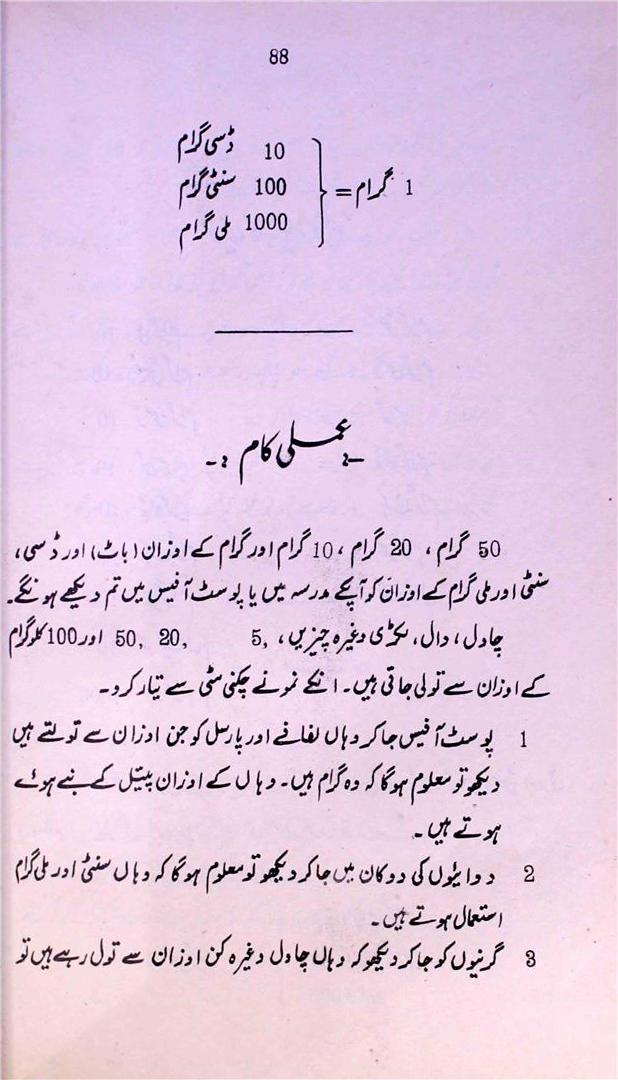 88
10 ڈسی گرام
1 گرام = 100 سنٹی گرام
1000 ملی گرام
عملی کام :۔
50 گرام ، 20 گرام ، 10 گرام اور گرام کے اوزان (باٹ) اور ڈسی ،
سنٹی اور ملی گرام کے اوزان کو آپکے مدرسہ میں یا پوسٹ آفیس میں تم دیکھے ہونگے۔
چاول ، دال ، لکڑی وغیرہ چیزیں ، 5, 20, 50, اور 100 کلوگرام
کے اوزان سے تولی جاتی ہیں۔ انکے نمونے چکنی مٹی سے تیار کرو۔
1 پوسٹ آفیس جا کر وہاں لفافے اور پارسل کو جن اوزان سے تولتے ہیں
دیکھو تو معلوم ہوگا کہ وہ گرام ہیں۔ وہاں کے اوزان پیتل کے بنے ہوئے
ہوتے ہیں۔
2 دوائیوں کی دوکان میں جا کر دیکھو تو معلوم ہوگا کہ وہاں سنٹی اور ملی گرام
استعمال ہوتے ہیں۔
3 گرنیوں کو جا کر دیکھو کہ وہاں چاول وغیرہ کن اوزان سے تول رہے ہیں تو